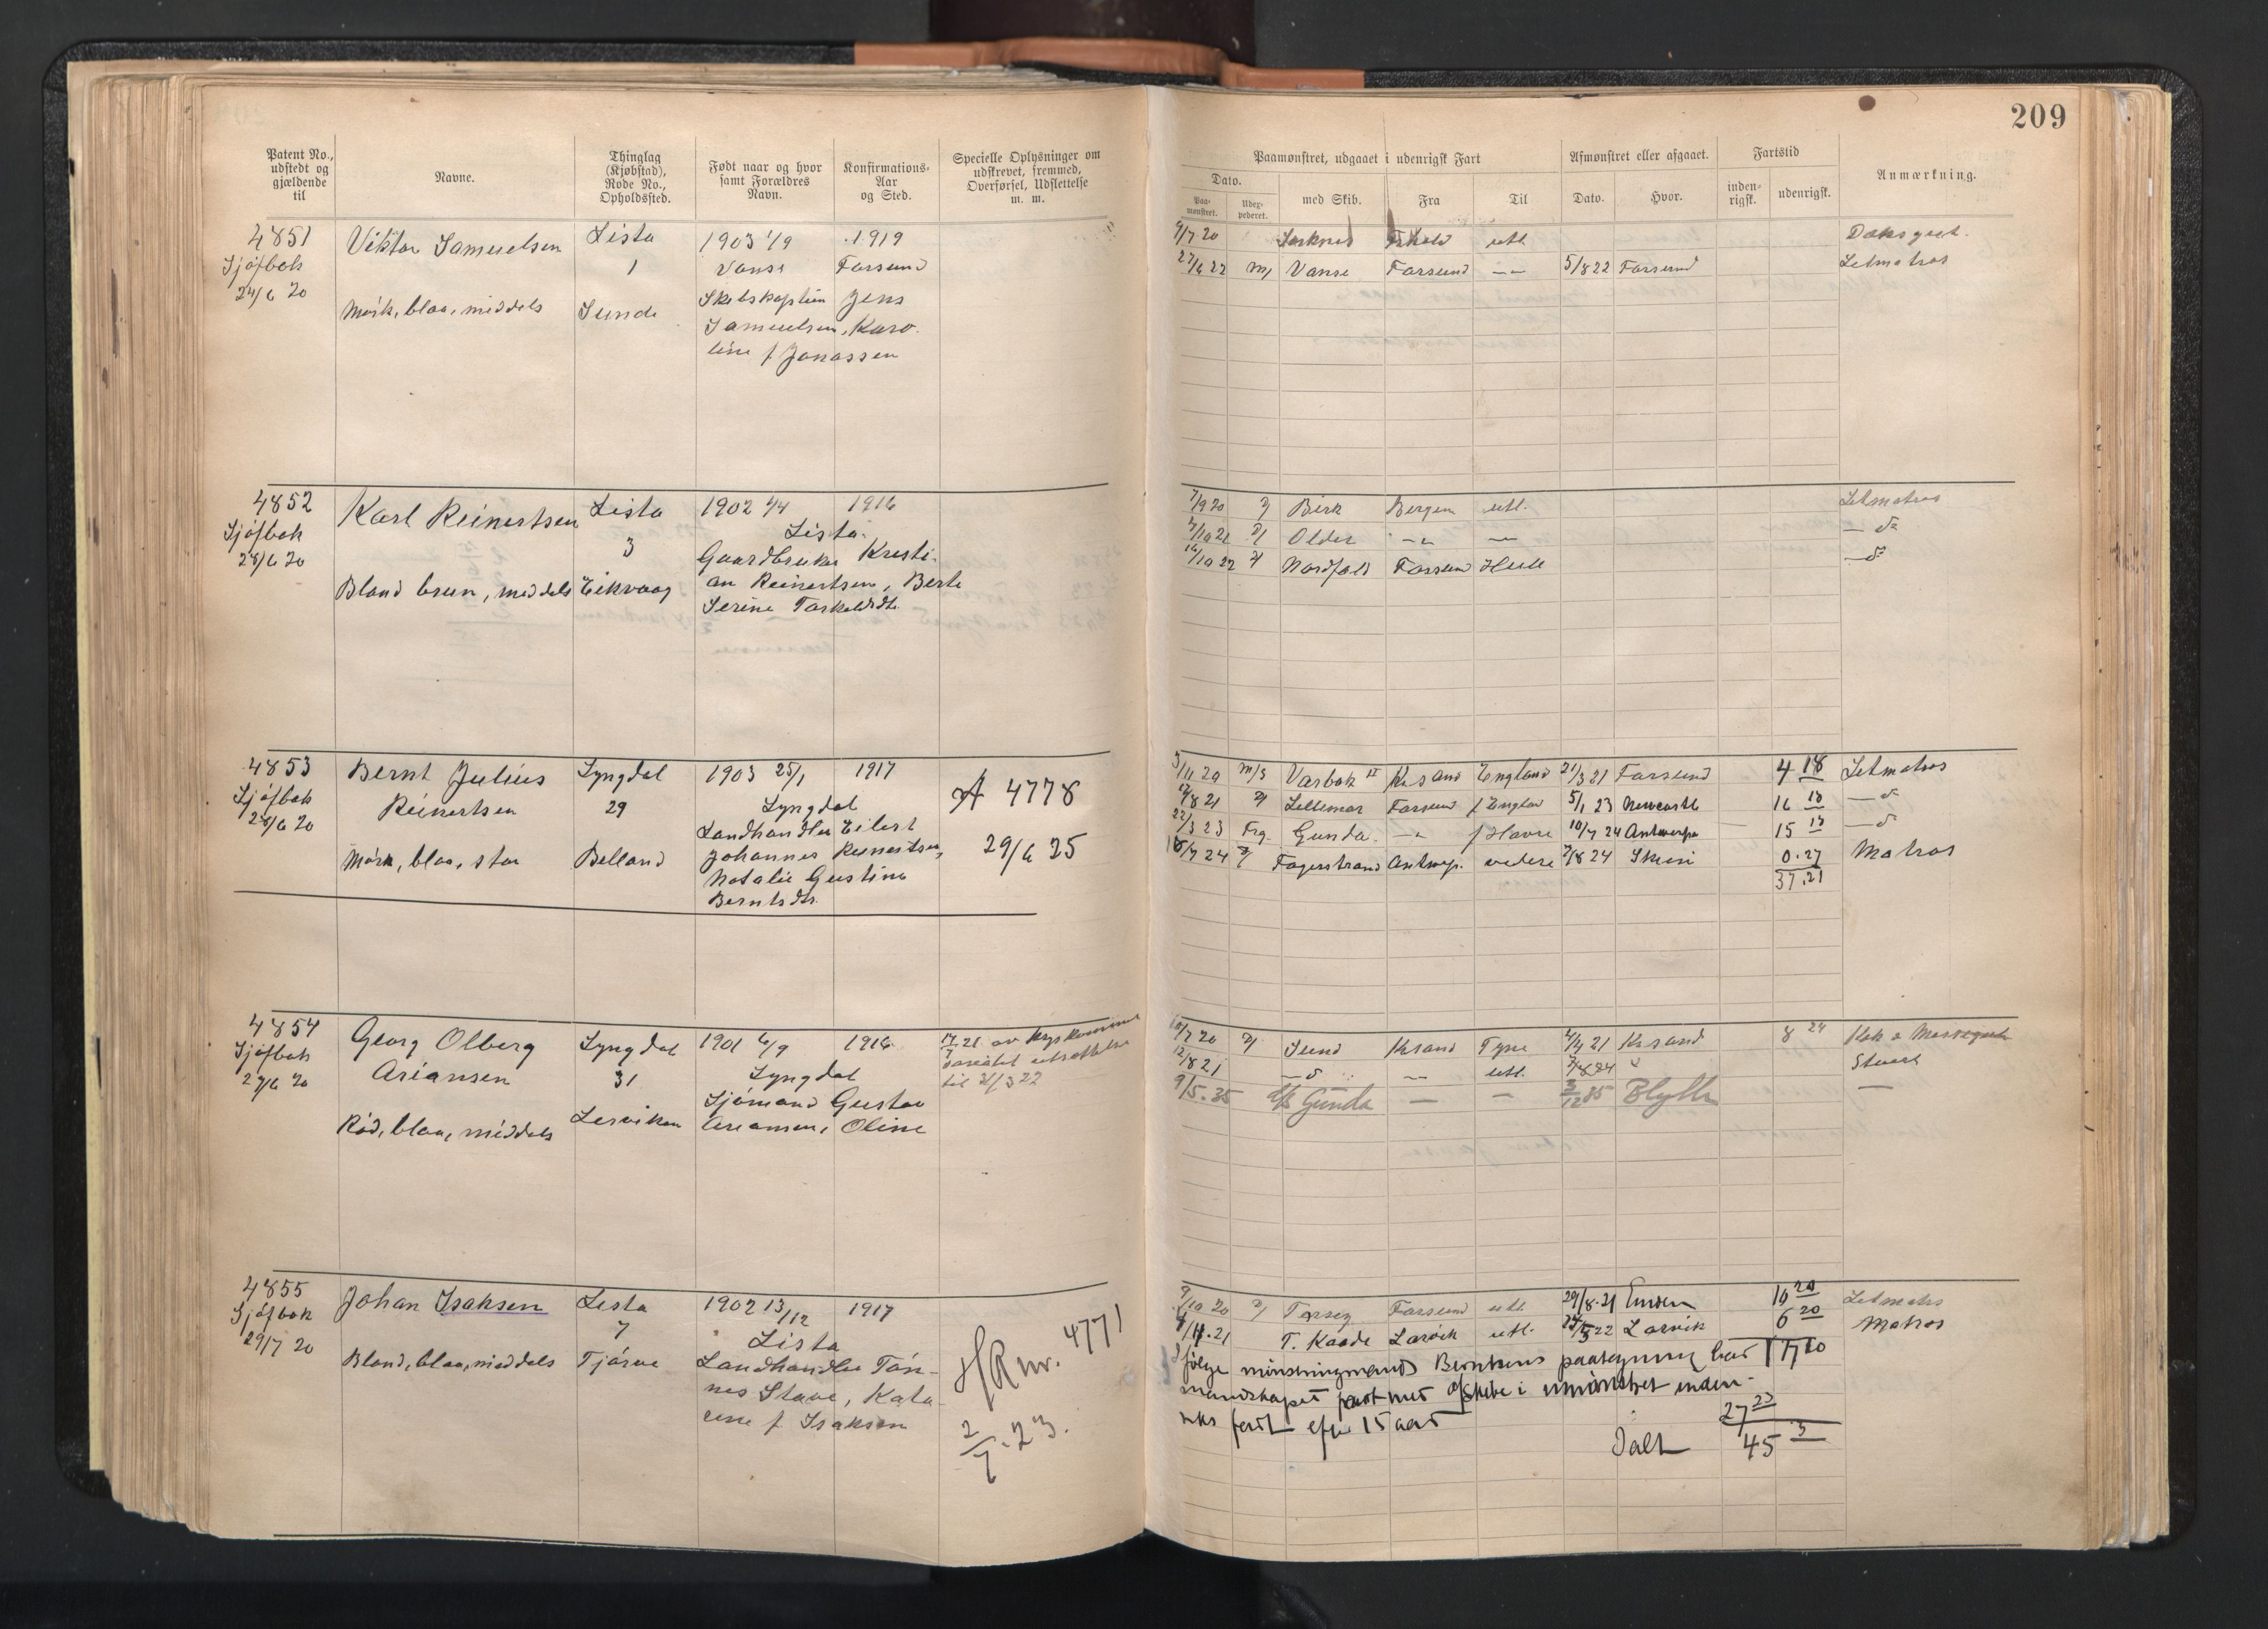 209
Patent No., udstedt og gjældende til
Navne.
Thinglag (Kjøbstad), Rode No., Opholdssted.
Født naar og hvor samt Forældres Navn.
Konfirmations-Aar og Sted.
Specielle Oplysninger om udskrevet, fremmed, Overførsel, Udslettelse m. m.
Paamønstret, udgaaet i udenrigsk Fart
Dato.
Paa-mønstret.
Udex-pederet.
med Skib.
Fra
Til
Afmønstret eller afgaaet.
Dato.
Hvor.
Fartstid
inden-rigsk.
udenrigsk.
Anmærkning.
4851
Sjøfbok
24/6 20
Viktor Samuelsen
Mørk, blaa, middels
Lista
1
Sunde
1903 1/9
1919
Vanse Farsund
Skibskaptein Jens
Samuelsen, Karo-
line f. Jonassen
9/7 20 utl.
27/6 22 m/ Vanse Farsund -"- 5/8 22 Farsund Letmatros
4852
Sjøfbok
28/6 20
Karl Reinertsen
Bland brun, middels
Lista
3
Eikvaag
1902 4/4
1916
Lista
Gaardbruker Kristi-
an Reinertsen, Berte
Serine Torkeldsdtr.
7/9 20 Birk Bergen utl. Letmatros
7/10 21 Older -"- -"- - do
16/10 22 Nordfold Farsund Hull - do
4853
Sjøfbok
28/6 20
Bernt Julius
Reinertsen
Mørk, blaa, stor
Lyngdal
29
Belland
1903 25/1
1917
Lyngdal
Landhandler Eilert
Johannes Reinertsen,
Natalie Gustine
Berntsdtr.
A 4778
29/6 25
3/11 20 m/s Varbak II Kr.sand England 21/3 21 Farsund 4 18 Letmatros
12/8 21 Lillemor Farsund f England 5/1 23 Newcastle 16 18 - do
22/3 23 Frg. Gunda -"- f Havre 10/7 24 Antwerpn 15 18 - do
18/7 24 Fagerstrand Antwrp. videre 7/8 24 Skien 0.27 Matros
37.21
4854
Sjøfbok
29/6 20
Georg Olberg
Ariansen
Rød, blaa, middels
Lyngdal
31
Lervikan
1901 6/9
1916
Lyngdal
Sjømand Gustav
Ariansen, Oline
til 31/3 22
10/7 20 Sund Kr.sand Tyne 4/4 21 Kr.sand 8 24 Kok & Messegut
12/8 21 - do - utl. Stuert
9/5.35 d/s Gunda - - 3/12 35 Blyth -
4855
Sjøfbok
29/7 20
Johan Isaksen
Bland, blaa, middels
Lista
7
Tjørve
1902 13/12
1917
Lista
Landhandler Tøn-
nes Stave, Kata-
rine f. Isaksen
HR nr. 4771
2/7.23.
9/10 20 Farsund utl. 29/8.21 Emden 10 20 Letmatrs
T. Kaade Larvik utl. Larvik 6 20 Matros
Ifølge mønstringmands Berntsens paategning har 17 10
mandskapet inden-
riks fart efter 15 aar
27 23
Ialt 45 3